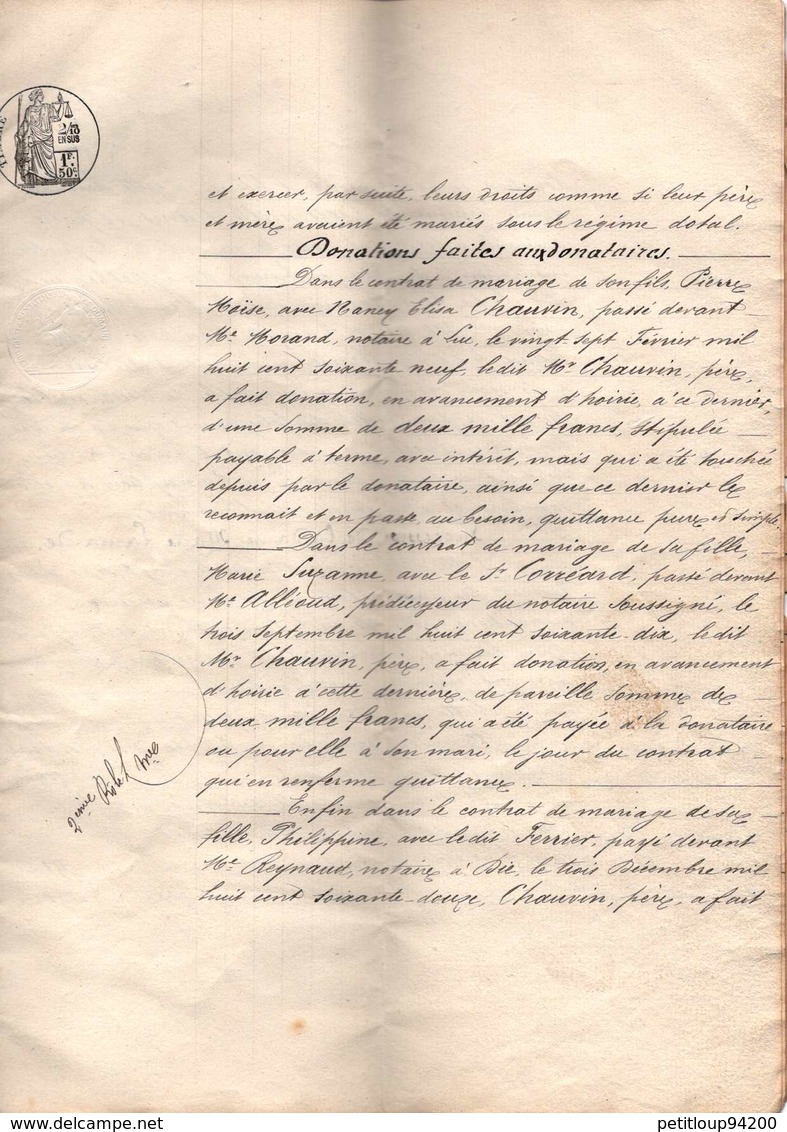 TIMBRE
2/10
EN SUS
1F.
50c.
et exercer, par suite, leurs droits comme si leur père
et mère avaient été mariés sous le régime dotal.
Donations faites aux donataires.
Dans le contrat de mariage de son fils, Pierre
Moïse, avec Nancy Elisa Chauvin, passé devant
Me Morand, notaire à Luc, le vingt-sept Février mil
huit cent soixante neuf, ledit Mr Chauvin, père,
a fait donation, en avancement d'hoirie, à ce dernier,
d'une somme de deux mille francs, stipulée
payable à terme, avec intérêt, mais qui a été touchée
depuis par le donataire, ainsi que ce dernier le
reconnait et en passe, au besoin, quittance pure et simple.
Dans le contrat de mariage de sa fille,
Marie Suzanne, avec le Sr Corréard, passé devant
Me Alléoud, prédécesseur du notaire soussigné, le
trois Septembre mil huit cent soixante-dix, ledit
Mr Chauvin, père, a fait donation, en avancement
d'hoirie à cette dernière, de pareille somme de
deux mille francs, qui a été payée à la donataire
ou pour elle à son mari, le jour du contrat
qui en renferme quittance.
Enfin dans le contrat de mariage de sa
fille, Philippine, avec ledit Ferrier, passé devant
Me Reynaud, notaire à Die, le trois Décembre mil
huit cent soixante-douze, Chauvin, père, a fait
2ème Rôle
petitloup94200